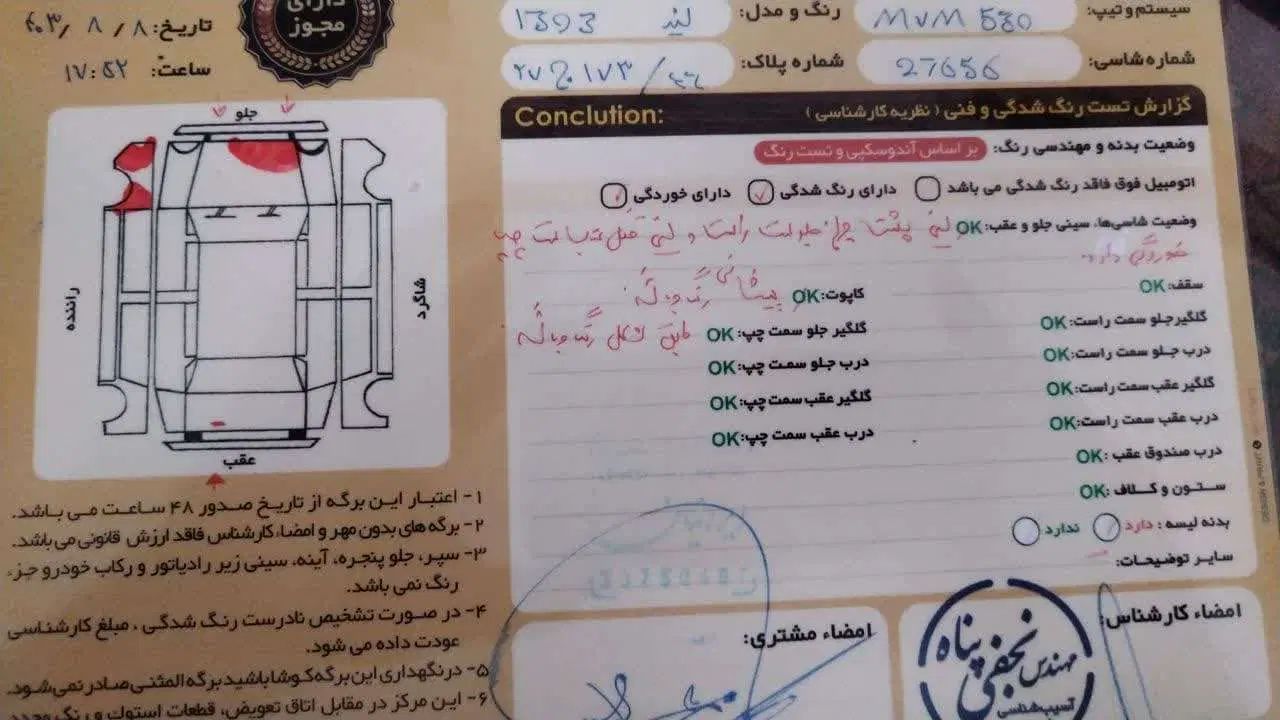 سیستم و تیپ: MVM 530
رنگ و مدل: 1393
شماره شاسی: 27656
شماره پلاک: ۱۷۳ / ۴۶
دارای
مجوز
تاریخ: ۴۰۳/۸/۸
ساعت: ۱۷:۵۲
گزارش تست رنگ شدگی و فنی ( نظریه کارشناسی )
Conclution:
وضعیت بدنه و مهندسی رنگ: بر اساس آندوسکپی و تست رنگ
اتومبیل فوق فاقد رنگ شدگی می باشد
دارای رنگ شدگی
دارای خوردگی
وضعیت شاسی‌ها، سینی جلو و عقب: OK
خوردگی دارد.
سقف: OK
کاپوت: OK
گلگیر جلو سمت راست: OK
گلگیر جلو سمت چپ: OK
درب جلو سمت راست: OK
درب جلو سمت چپ: OK
گلگیر عقب سمت راست: OK
گلگیر عقب سمت چپ: OK
درب عقب سمت راست: OK
درب عقب سمت چپ: OK
درب صندوق عقب: OK
ستون و کلاف: OK
بدنه لیسه: دارد ندارد
سایر توضیحات:
امضاء کارشناس:
مهندس نجفی پناه
آسیب‌شناسی
امضاء مشتری:
جلو
راننده
شاگرد
عقب
۱- اعتبار این برگه از تاریخ صدور ۴۸ ساعت می باشد.
۲- برگه های بدون مهر و امضاء کارشناس فاقد ارزش قانونی می باشد.
۳- سپر، جلو پنجره، آینه، سینی زیر رادیاتور و رکاب خودرو جزء
رنگ نمی باشد.
۴- در صورت تشخیص نادرست رنگ شدگی، مبلغ کارشناسی
عودت داده می شود.
۵- در نگهداری این برگه کوشا باشید برگه المثنی صادر نمی شود.
۶- این مرکز در مقابل اتاق تعویض، قطعات استوک و رنگ